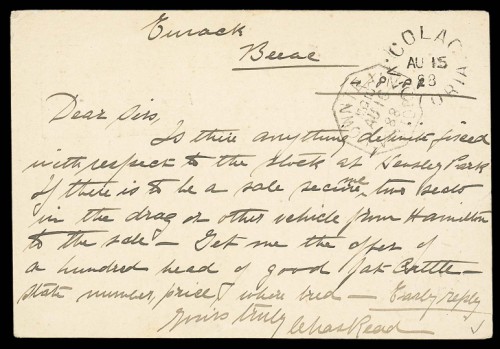 Eurack
Beeac
COLAC
AU 15
88
Dear Sirs,
Is there anything definite fixed
with respect to the stock at Hensley Park
If there is to be a sale secure me two seats
in the drag or other vehicle from Hamilton
to the sale – Get me the offer of
a hundred head of good fat Cattle –
state number, price & where bred – Early reply
Yours truly
Chas Read